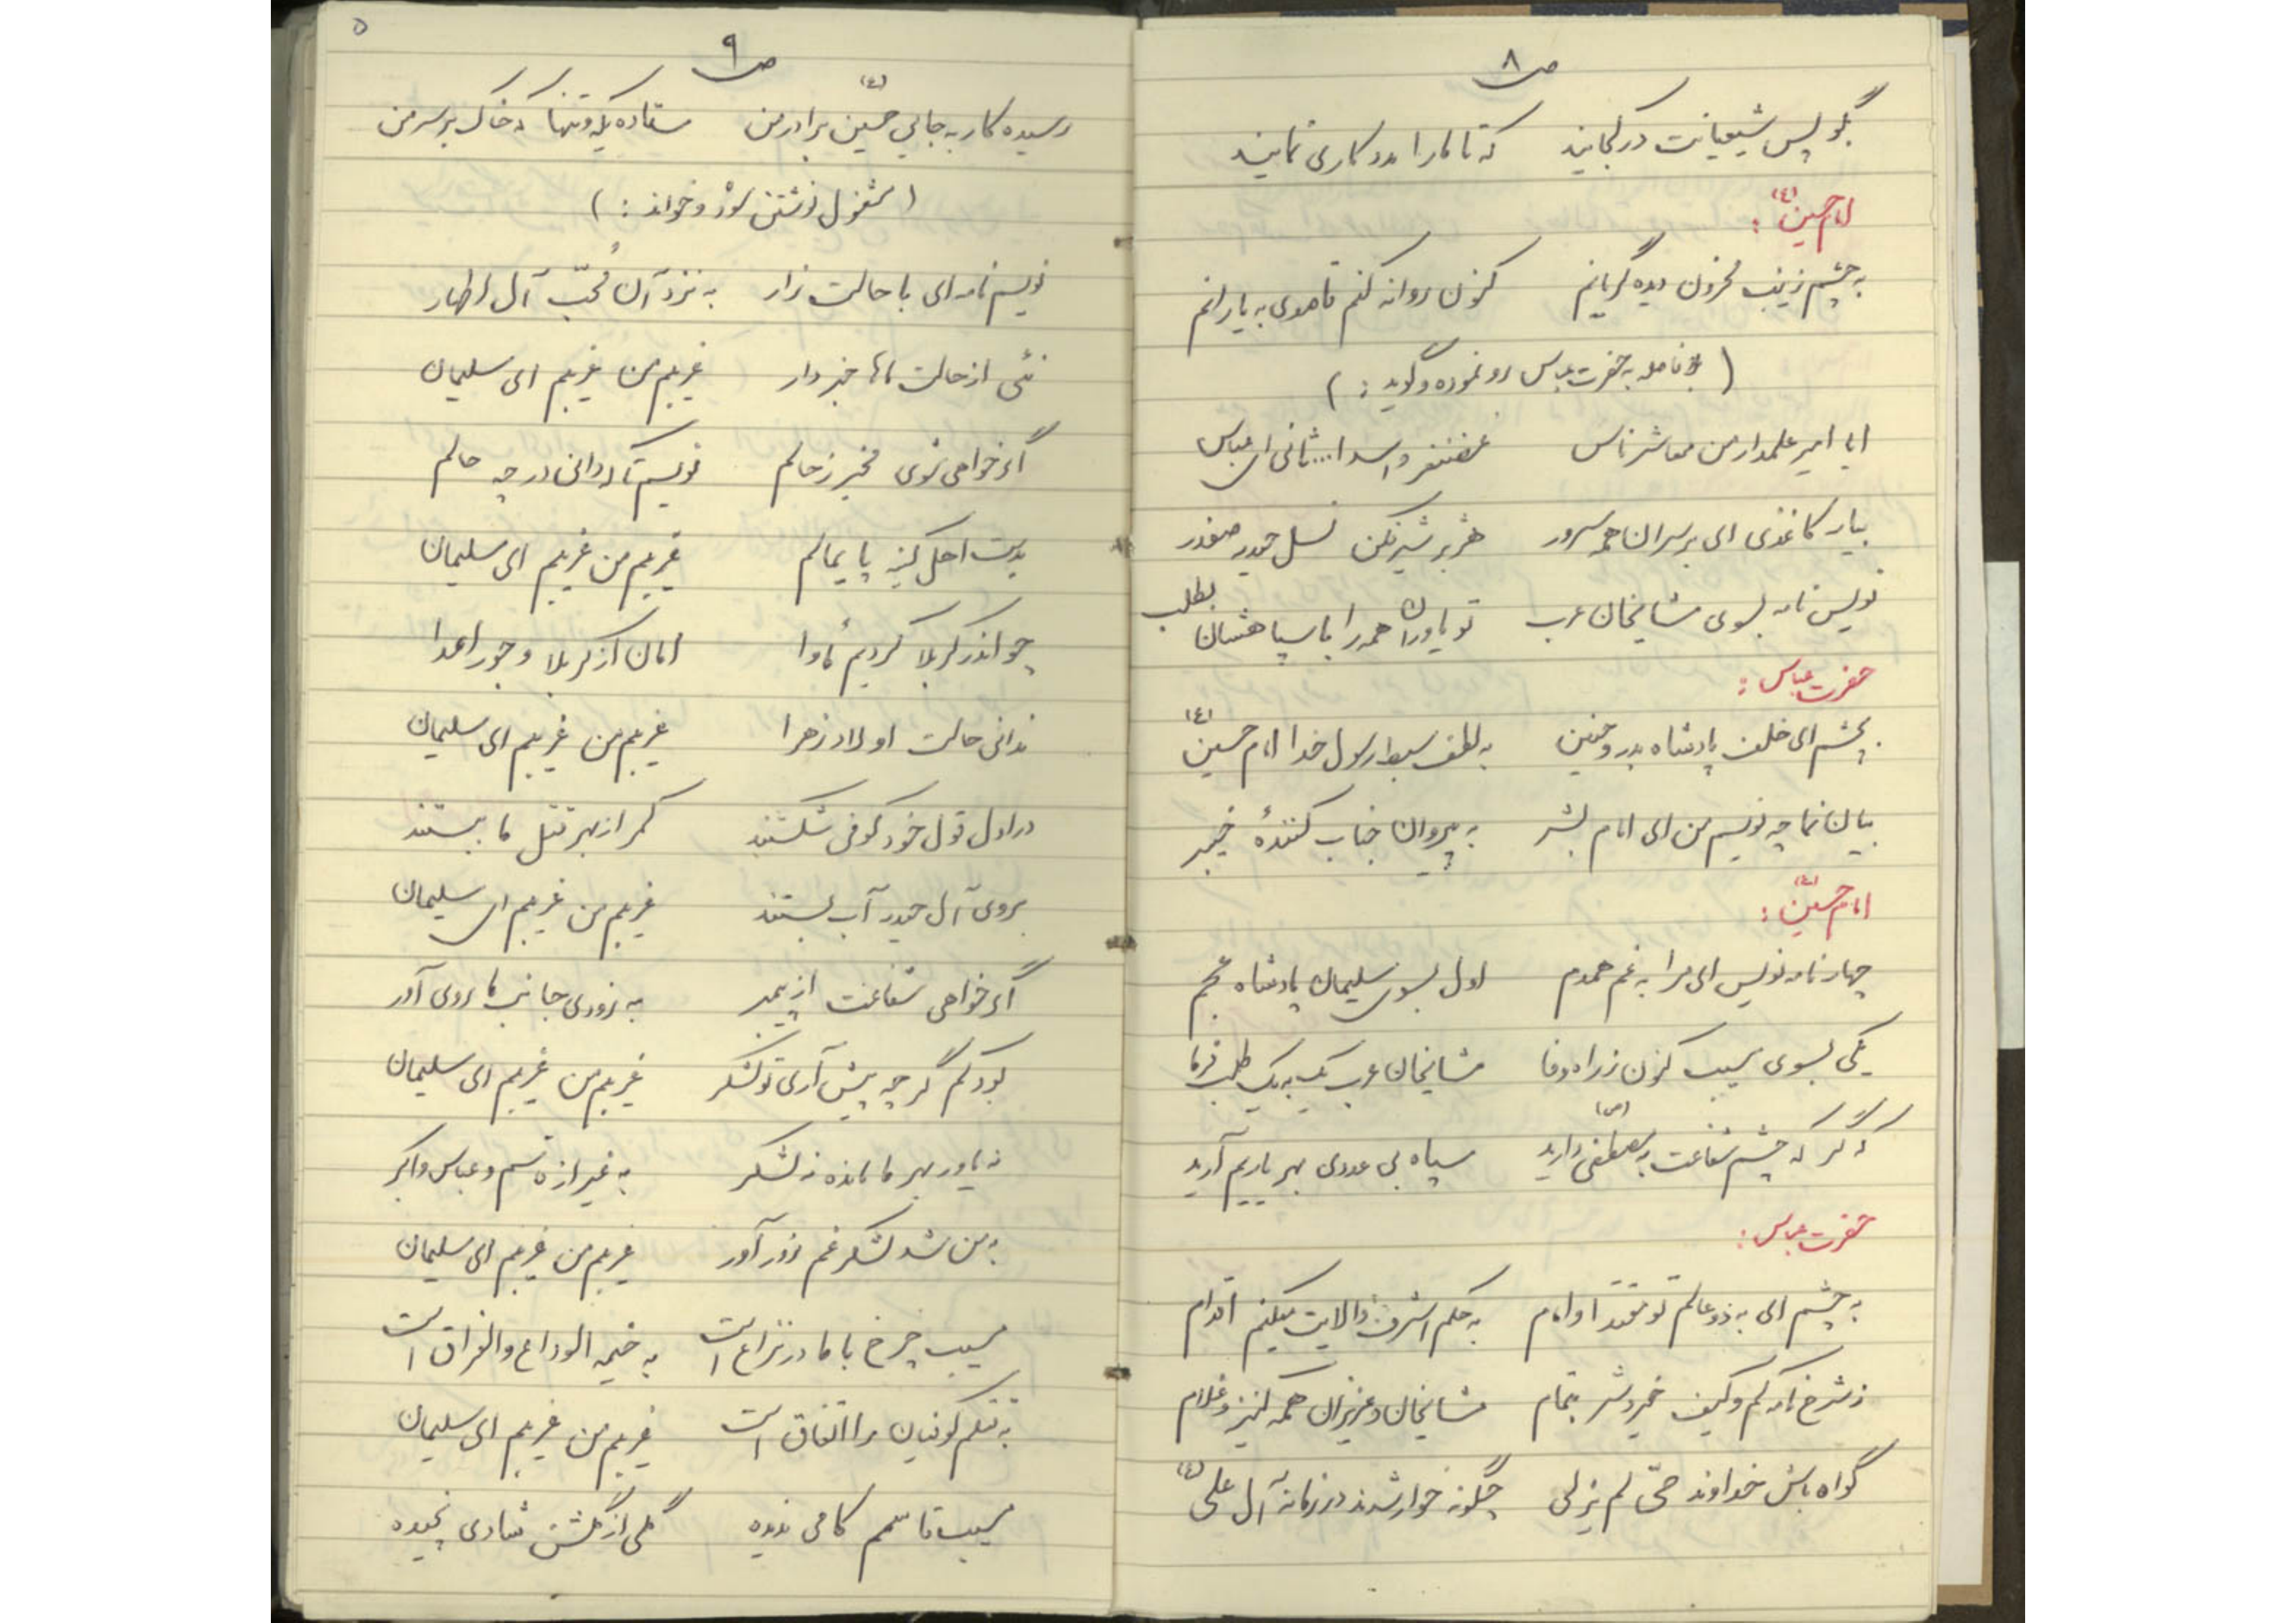 ص ۸
بگو پس شیعیانت در کجایند که تا ما را مدد کاری نمایند
امام حسین (ع) :
به چشم زینب محزون دیده گریانم کنون روانه کنم قاصدی به یارانم
( بلافاصله به حضرت عباس رو نموده و گوید : )
ایا امیر علمدار من معاشر ناس غضنفر و اسد ا... ثانی ای عباس
بیار کاغذی ای بر سران همه سرور هژبر شیرفکن نسل حیدر صفدر
نویس نامه بسوی مشایخان عرب تو یاوران همه را با سپاهشان بطلب
حضرت عباس :
بچشم ای خلف پادشاه بدر و حنین به لطف سبط رسول خدا امام حسین (ع)
بیان نما چه نویسم من ای امام بشر به پیروان جناب کنندهٔ خیبر
امام حسین (ع) :
چهار نامه نویس ای مرا به غم همدم اول بسوی سلیمان پادشاه عجم
یکی بسوی مسیب کنون ز راه وفا مشایخان عرب یک به یک طلب فرما
که گر که چشم شفاعت به مصطفی (ص) دارید سپاه بی عددی بهر یاریم آرید
حضرت عباس :
به چشم ای به دو عالم تو مقتدا و امام به حکم اشرف والایت میکنم اقدام
ز شرح نامه کم و کیف خیر و شر بتمام مشایخان و عزیزان همه کنیز و غلام
گواه باش خداوند حیّ لم یزلی چگونه خوار شدند در زمانه آل علی (ع)
۵
ص ۹
رسیده کار به جایی حسین (ع) برادر من ستاده یکه و تنها که خاک بر سر من
( مشغول نوشتن شود و خواند : )
نویسم نامه ای با حالت زار به نزد آن مُحبّ آل اطهار
نئی از حالت ماها خبردار غریبم من غریبم ای سلیمان
اگر خواهی شوی مخبر ز حالم نویسم تا بدانی در چه حالم
بدست اهل کینه پایمالم غریبم من غریبم ای سلیمان
چو اندر کربلا کردیم مأوا امان از کربلا و جور اعدا
ندانی حالت اولاد زهرا غریبم من غریبم ای سلیمان
در اول قول خود کوفی شکستند کمر از بهر قتل ما ببستند
بروی آل حیدر آب بستند غریبم من غریبم ای سلیمان
اگر خواهی شفاعت از پیمبر به زودی جانب ما روی آور
بود کم گر چه پیش آری تو لشکر غریبم من غریبم ای سلیمان
نه یاور بهر ما مانده نه لشکر به غیر از قاسم و عباس و اکبر
به من شد لشکر غم زور آور غریبم من غریبم ای سلیمان
مسیب چرخ با ما در نزاع است به خیمه الوداع و الفراق است
به قتلم کوفیان را اتفاق است غریبم من غریبم ای سلیمان
مسیب قاسمم کامی ندیده گلی از گلشن شادی نچیده